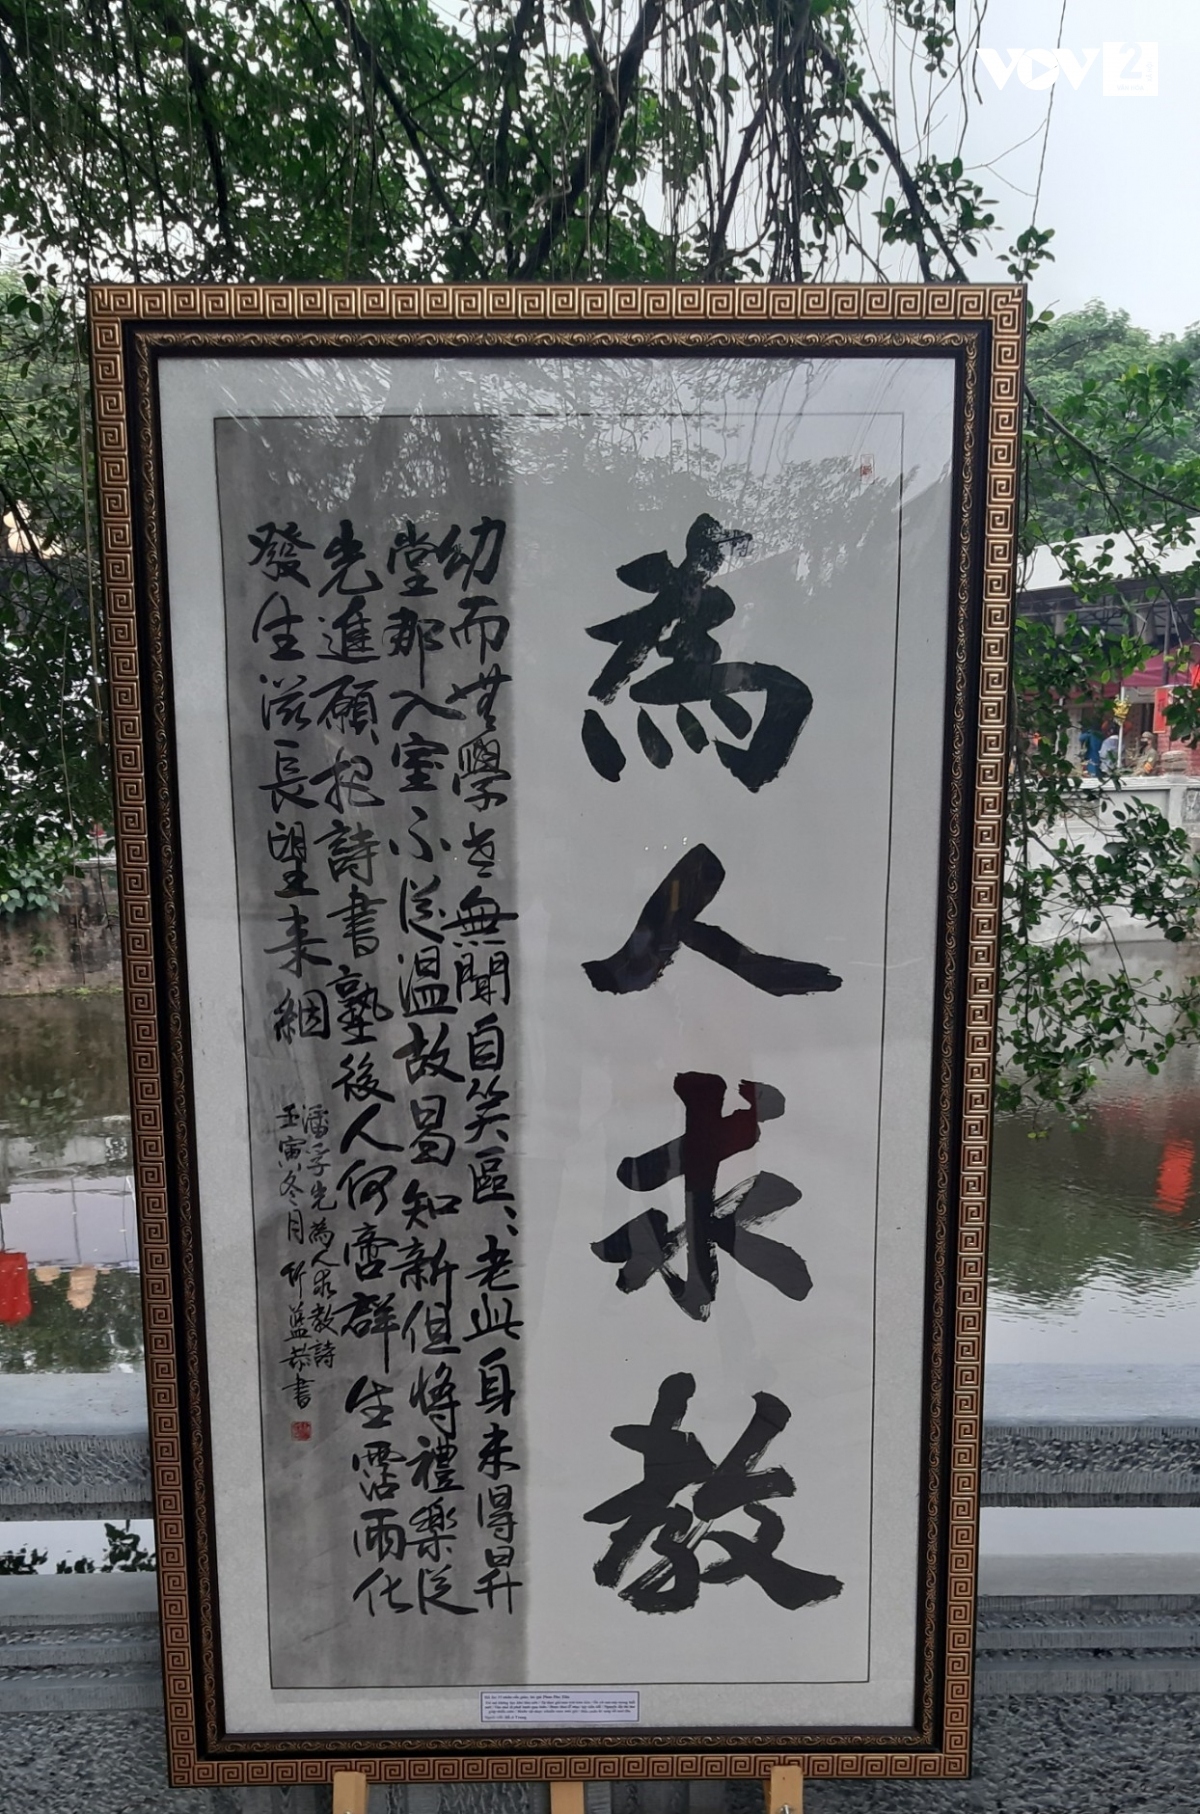 VOV2
為人求教
幼而無學老無聞自笑區、老此身未得昇
堂那入室不從溫故曷知新但將禮樂從
先進願把詩書塾後人何啻群生霑雨化
發生滋長望來絪
潘孚先為人求教詩
壬寅冬月竹藍恭書